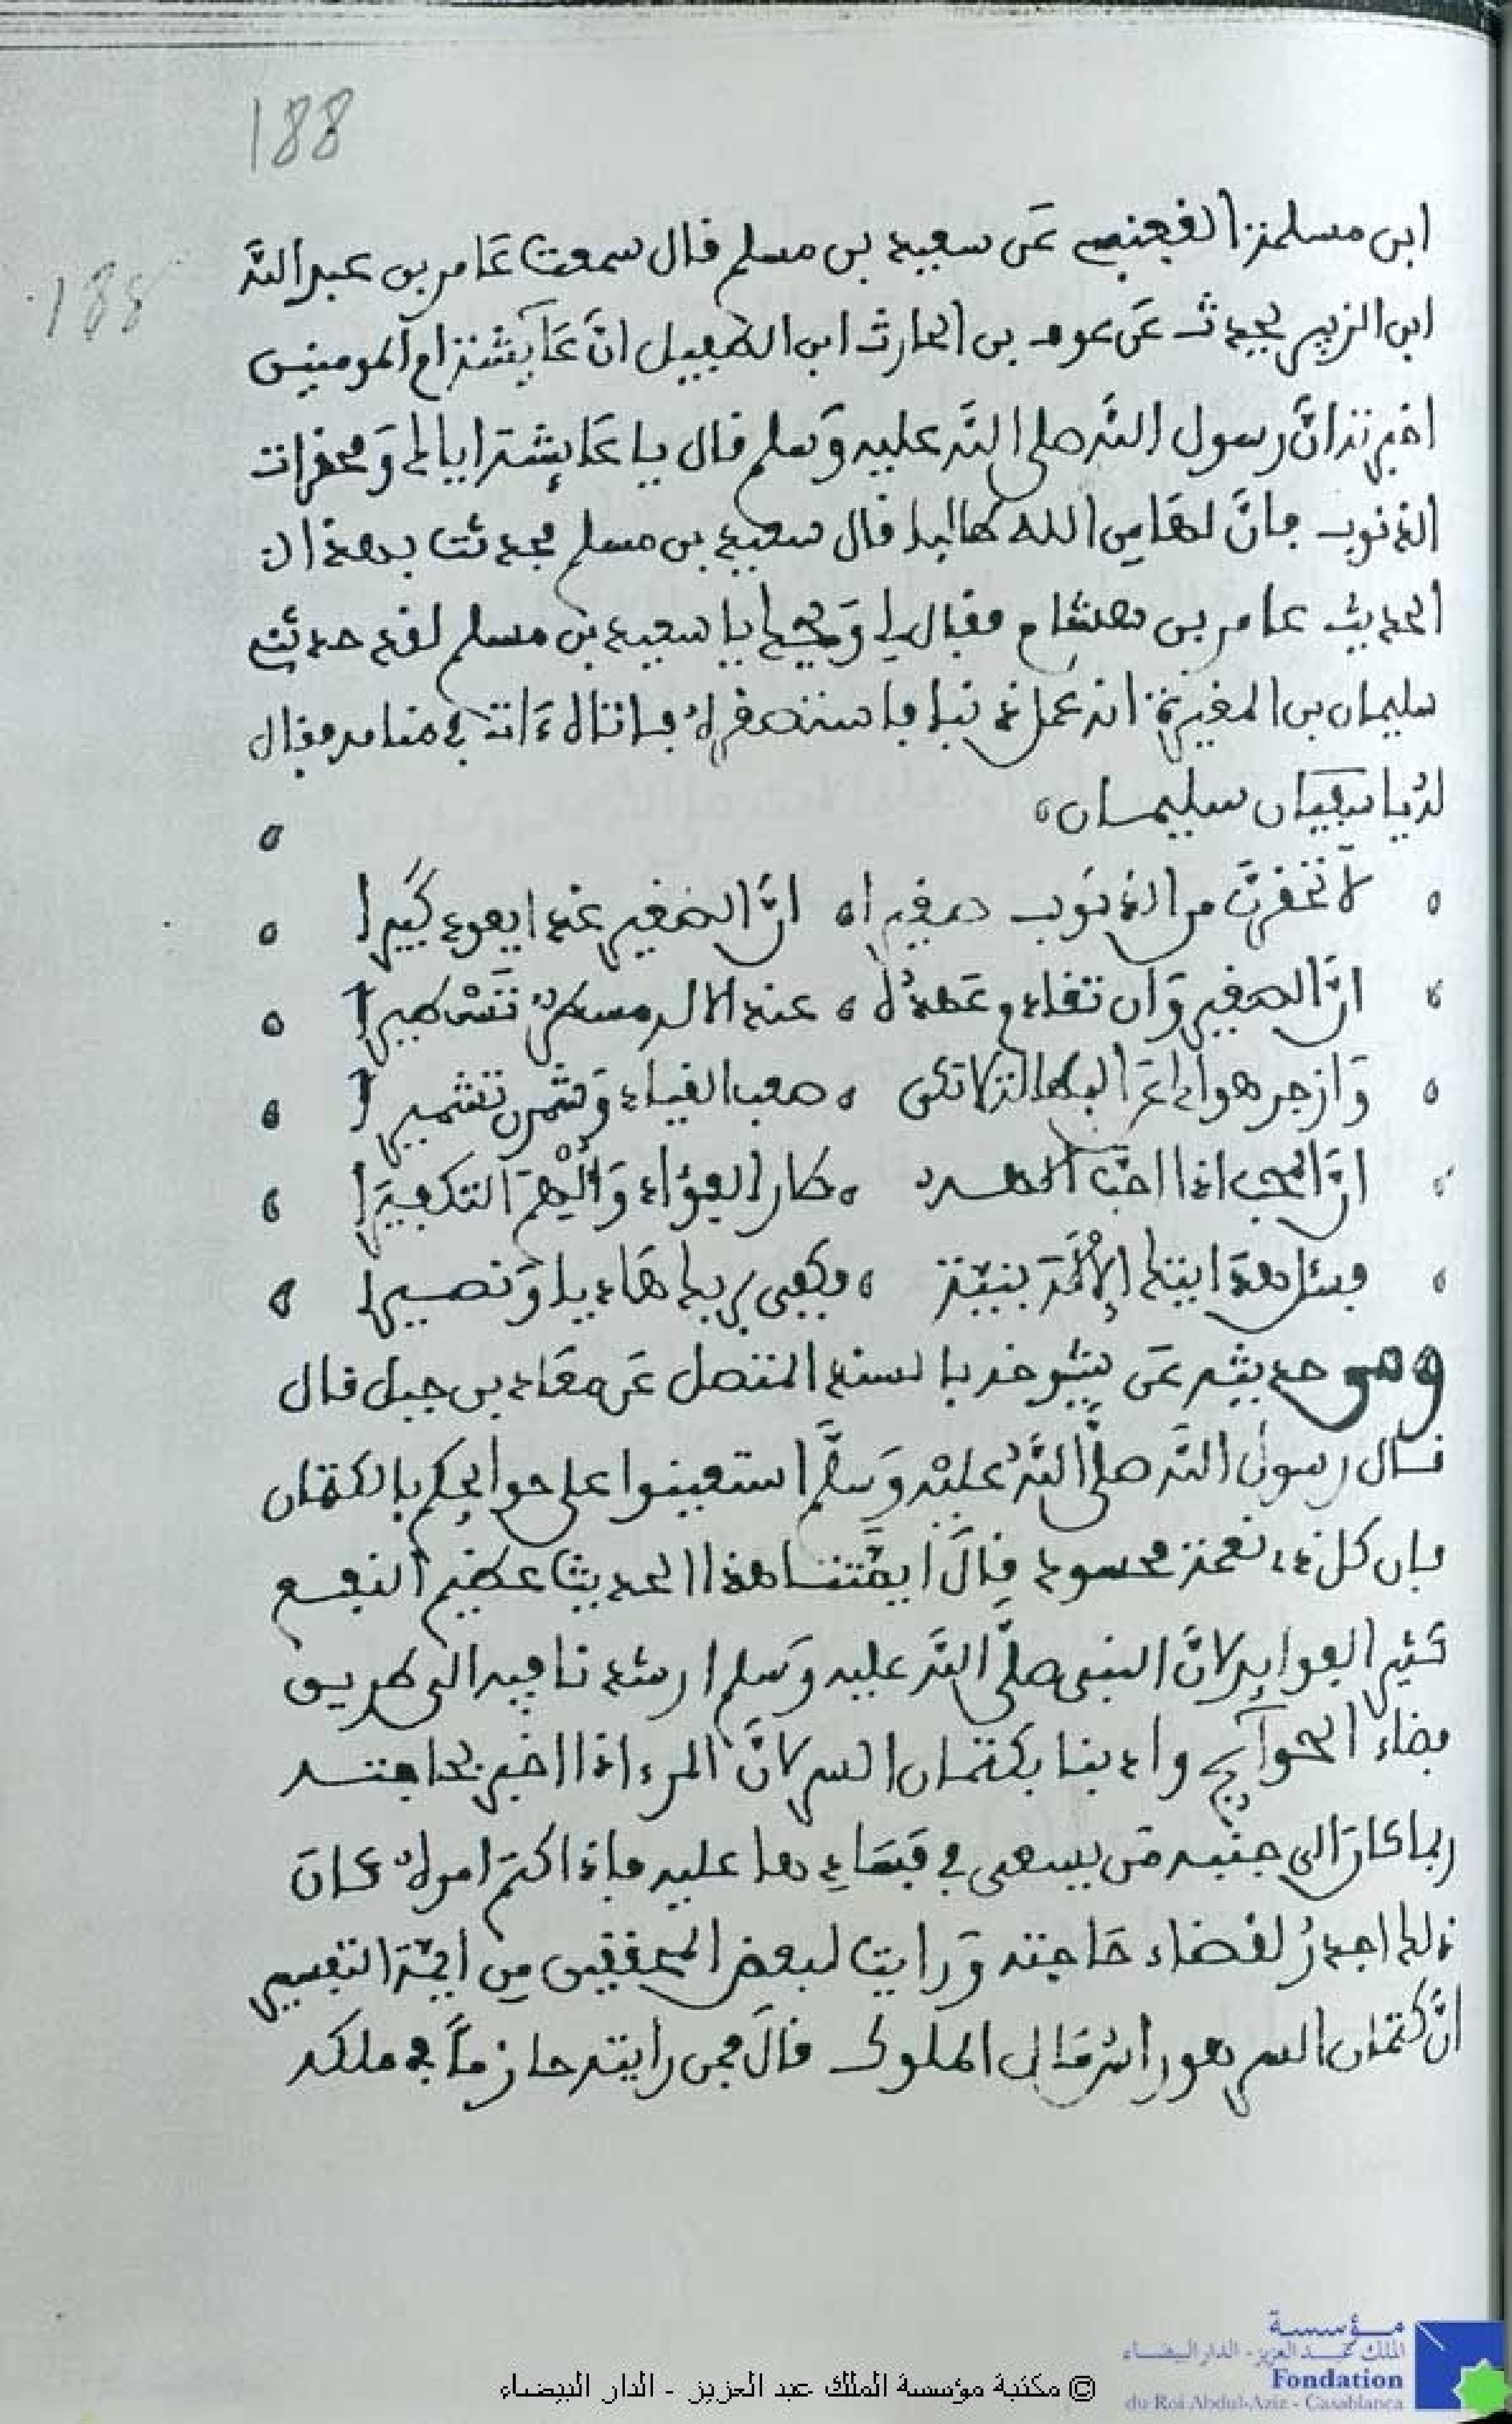 188
188
ابن مسلمة القعنبي عن سعيد بن مسلم قال سمعت عَامر بن عبد الله
ابن الزبير يحدث عَن عوف بن الحارث ابن الطفيل انَّ عَايشة ام المومنين
اخبرته انَّ رسول الله صلى الله عليه وَسلم قال يا عَايشة اياك وَمحقرات
الذنوب فانَّ لها من الله طالبا قال سعيد بن مسلم فحدثت بهذا
الحديث عامر بن هشام فقال لي وَيحك يا سعيد بن مسلم لقد حدثني
سليمان بن المغيرة انه عمل ذنبا فاستصغره فاتاه ءَات في منامه فقال
له يا سليمان
لا تحقرنَّ من الذنوب صغيرا انَّ الصغير غدا يعود كَبيرا
انَّ الصغير وَان تقادم عَهده عند الاله مسطر تَسْطيرا
وَازجر هواك عَن البطالة لا تكن صعب القياد وَشمرن تشميرا
انَّ المحب اذا احبَّ الهه طار الفؤاد وَأُلْهِمَ التفكيرا
فسئل هدايتك الإلَهَ بنيَّة فكفى بربك هَاديا وَنصيرا
ومن حديثه عَن شيوخه بالسند المتصل عَن مُعَاذ بن جبل قال
قال رسول الله صلَّى اللهُ عليْه وَسلَّم استعينوا على حوائجكم بالكتمان
فان كل ذي نعمة محسود قال أيمَّتنا هذا الحديث عظيم النفع
كَثير الفوايد لانَّ النبي صلَّى الله عليه وَسلم ارشدنا فيه الى طريق
قضاء الحوآيج وادبنا بكتمان السر لانَّ المرء اذا اخبر بحاجته
ربما كانَ الى جنبه مَن يسعى في فسَادها عليه فاذا كتمَ امره كان
ذلك اجدرُ لقضاء حَاجته وَرايت لبعض المحققين من ايمَّة التفسير
انَّ كتمان السر هو راس مَال الملوك قالَ فمن رايته حازماً في ملكه
© مكتبة مؤسسة الملك عبد العزيز - الدار البيضاء
مؤسسة
الملك عبد العزيز - الدار البيضاء
Fondation
du Roi Abdul-Aziz - Casablanca